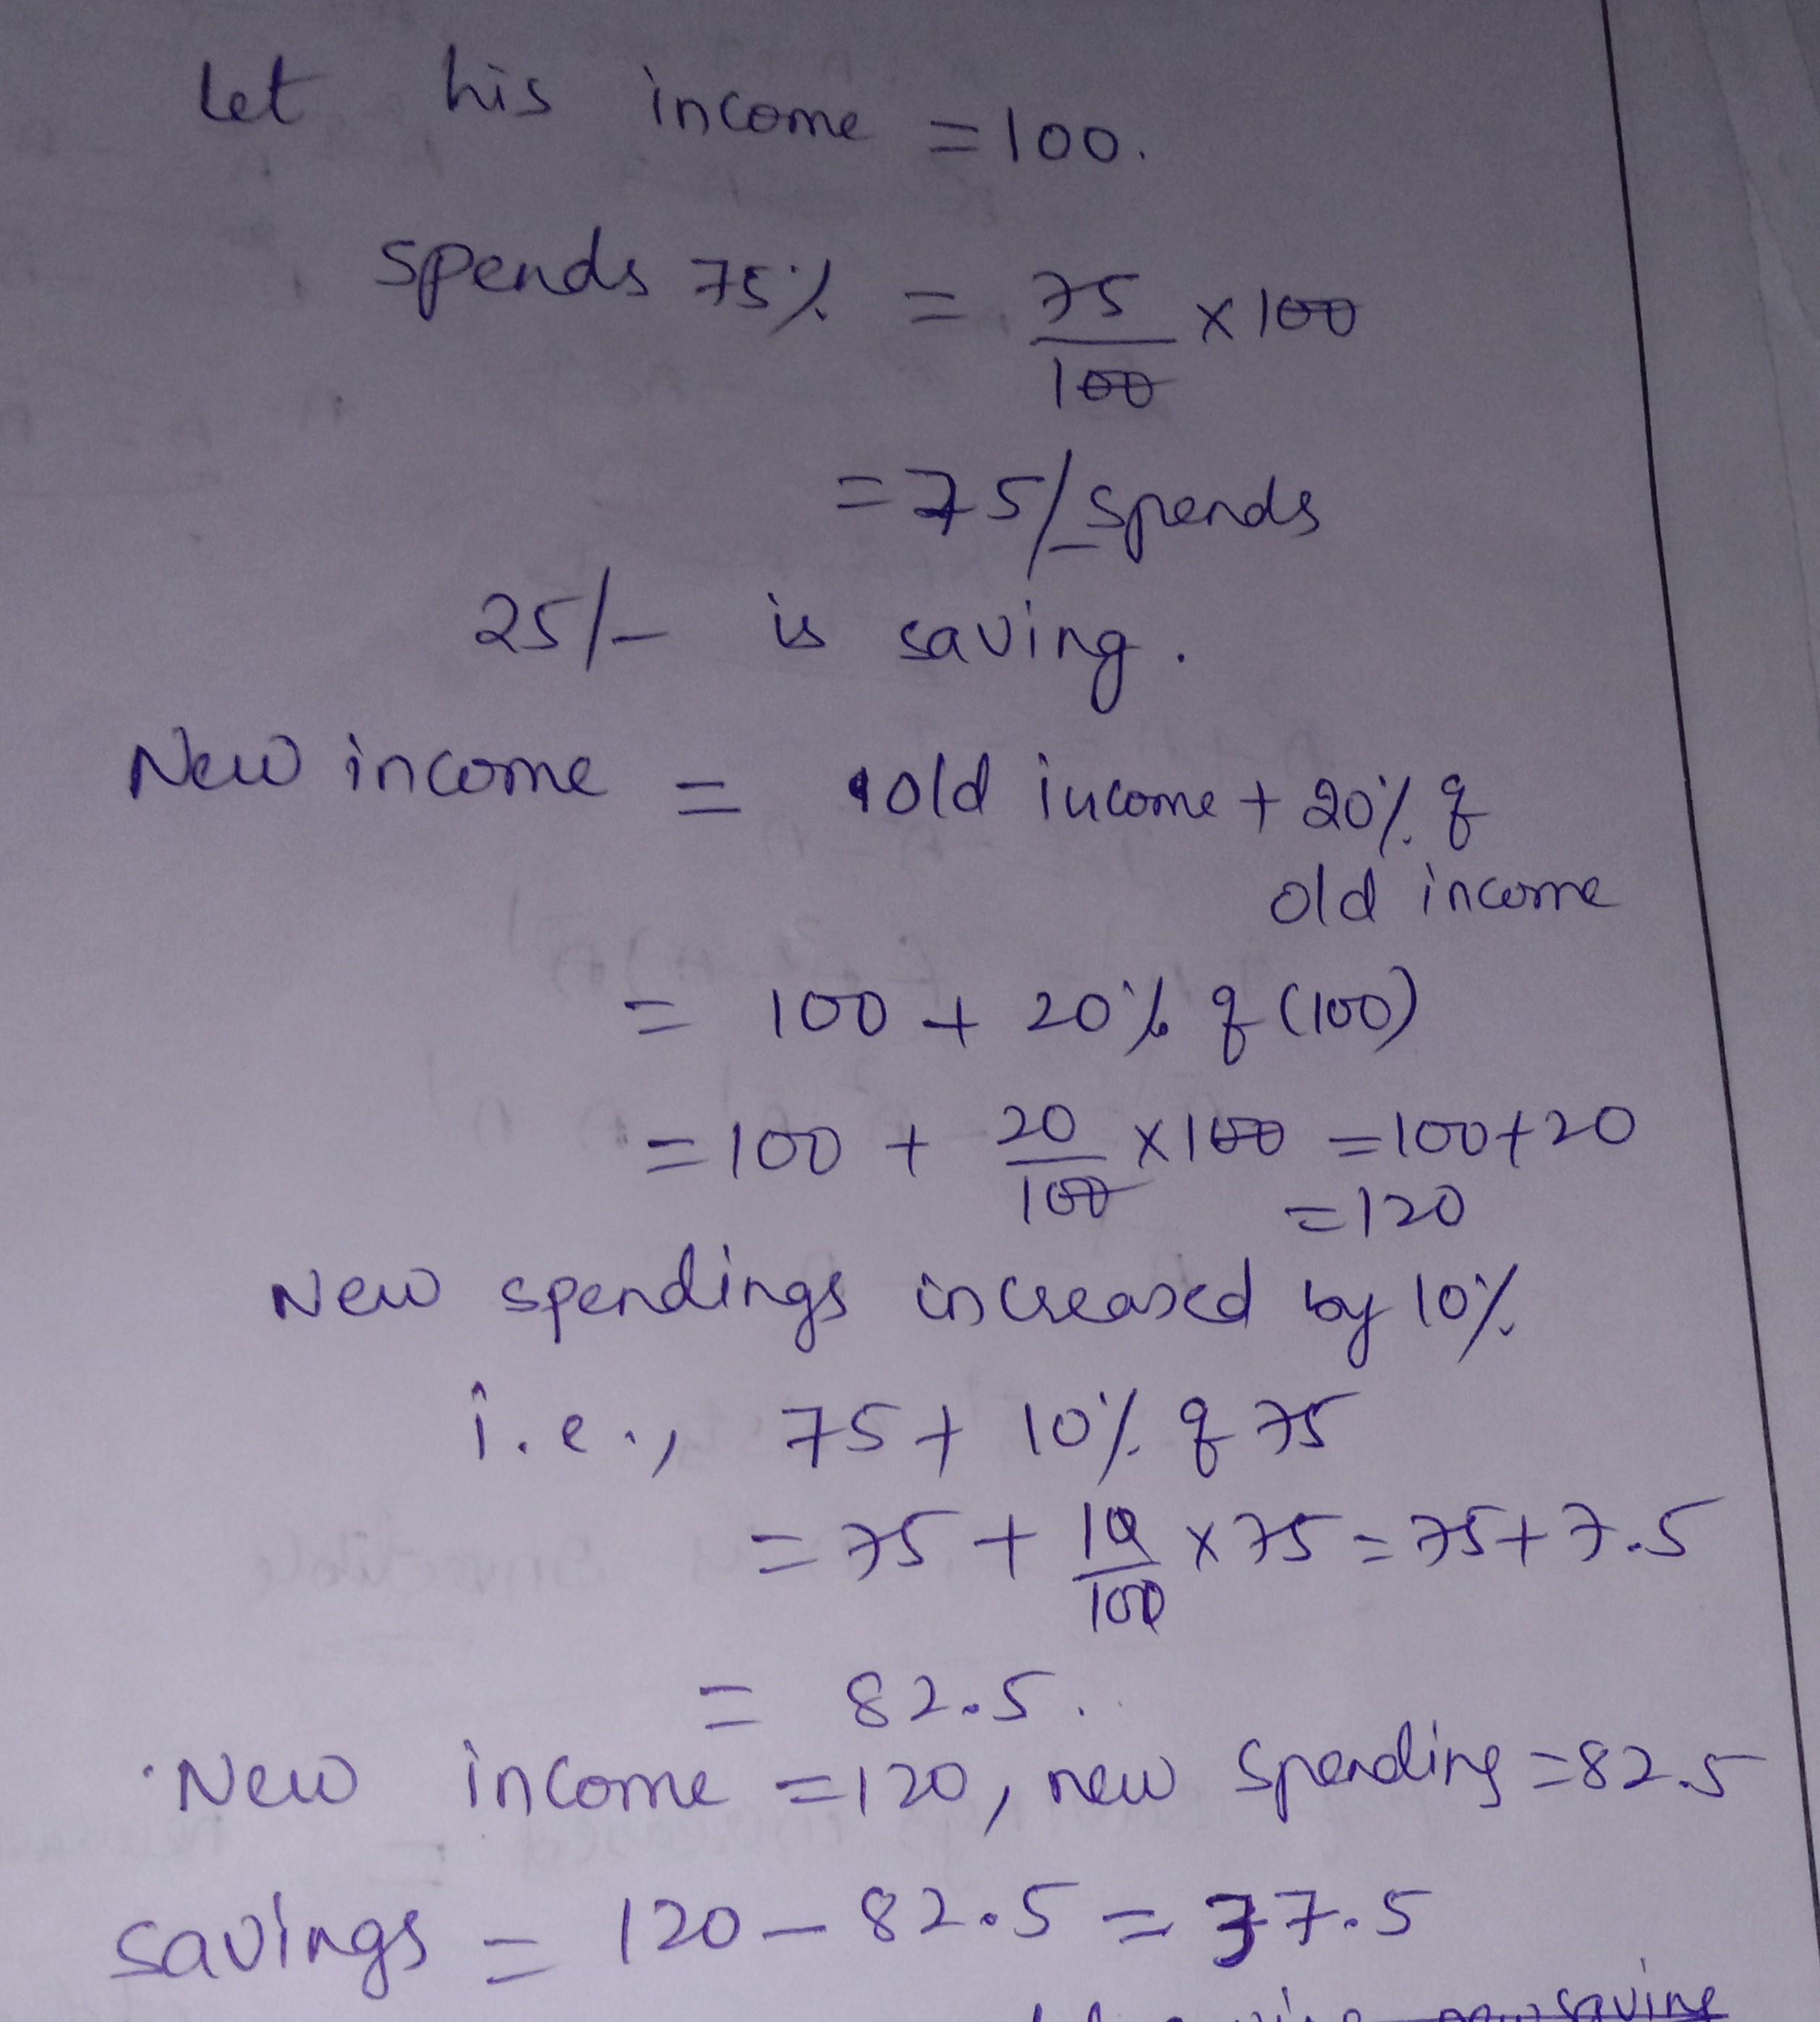 Let his income = 100.
spends 75% = 75/100 × 100
= 75/- spends
25/- is saving.
New income = old income + 20% of
old income
= 100 + 20% of (100)
= 100 + 20/100 × 100 = 100+20
= 120
New spendings increased by 10%
i.e., 75 + 10% of 75
= 75 + 10/100 × 75 = 75 + 7.5
= 82.5.
New income = 120, new spending = 82.5
savings = 120 - 82.5 = 37.5
new saving